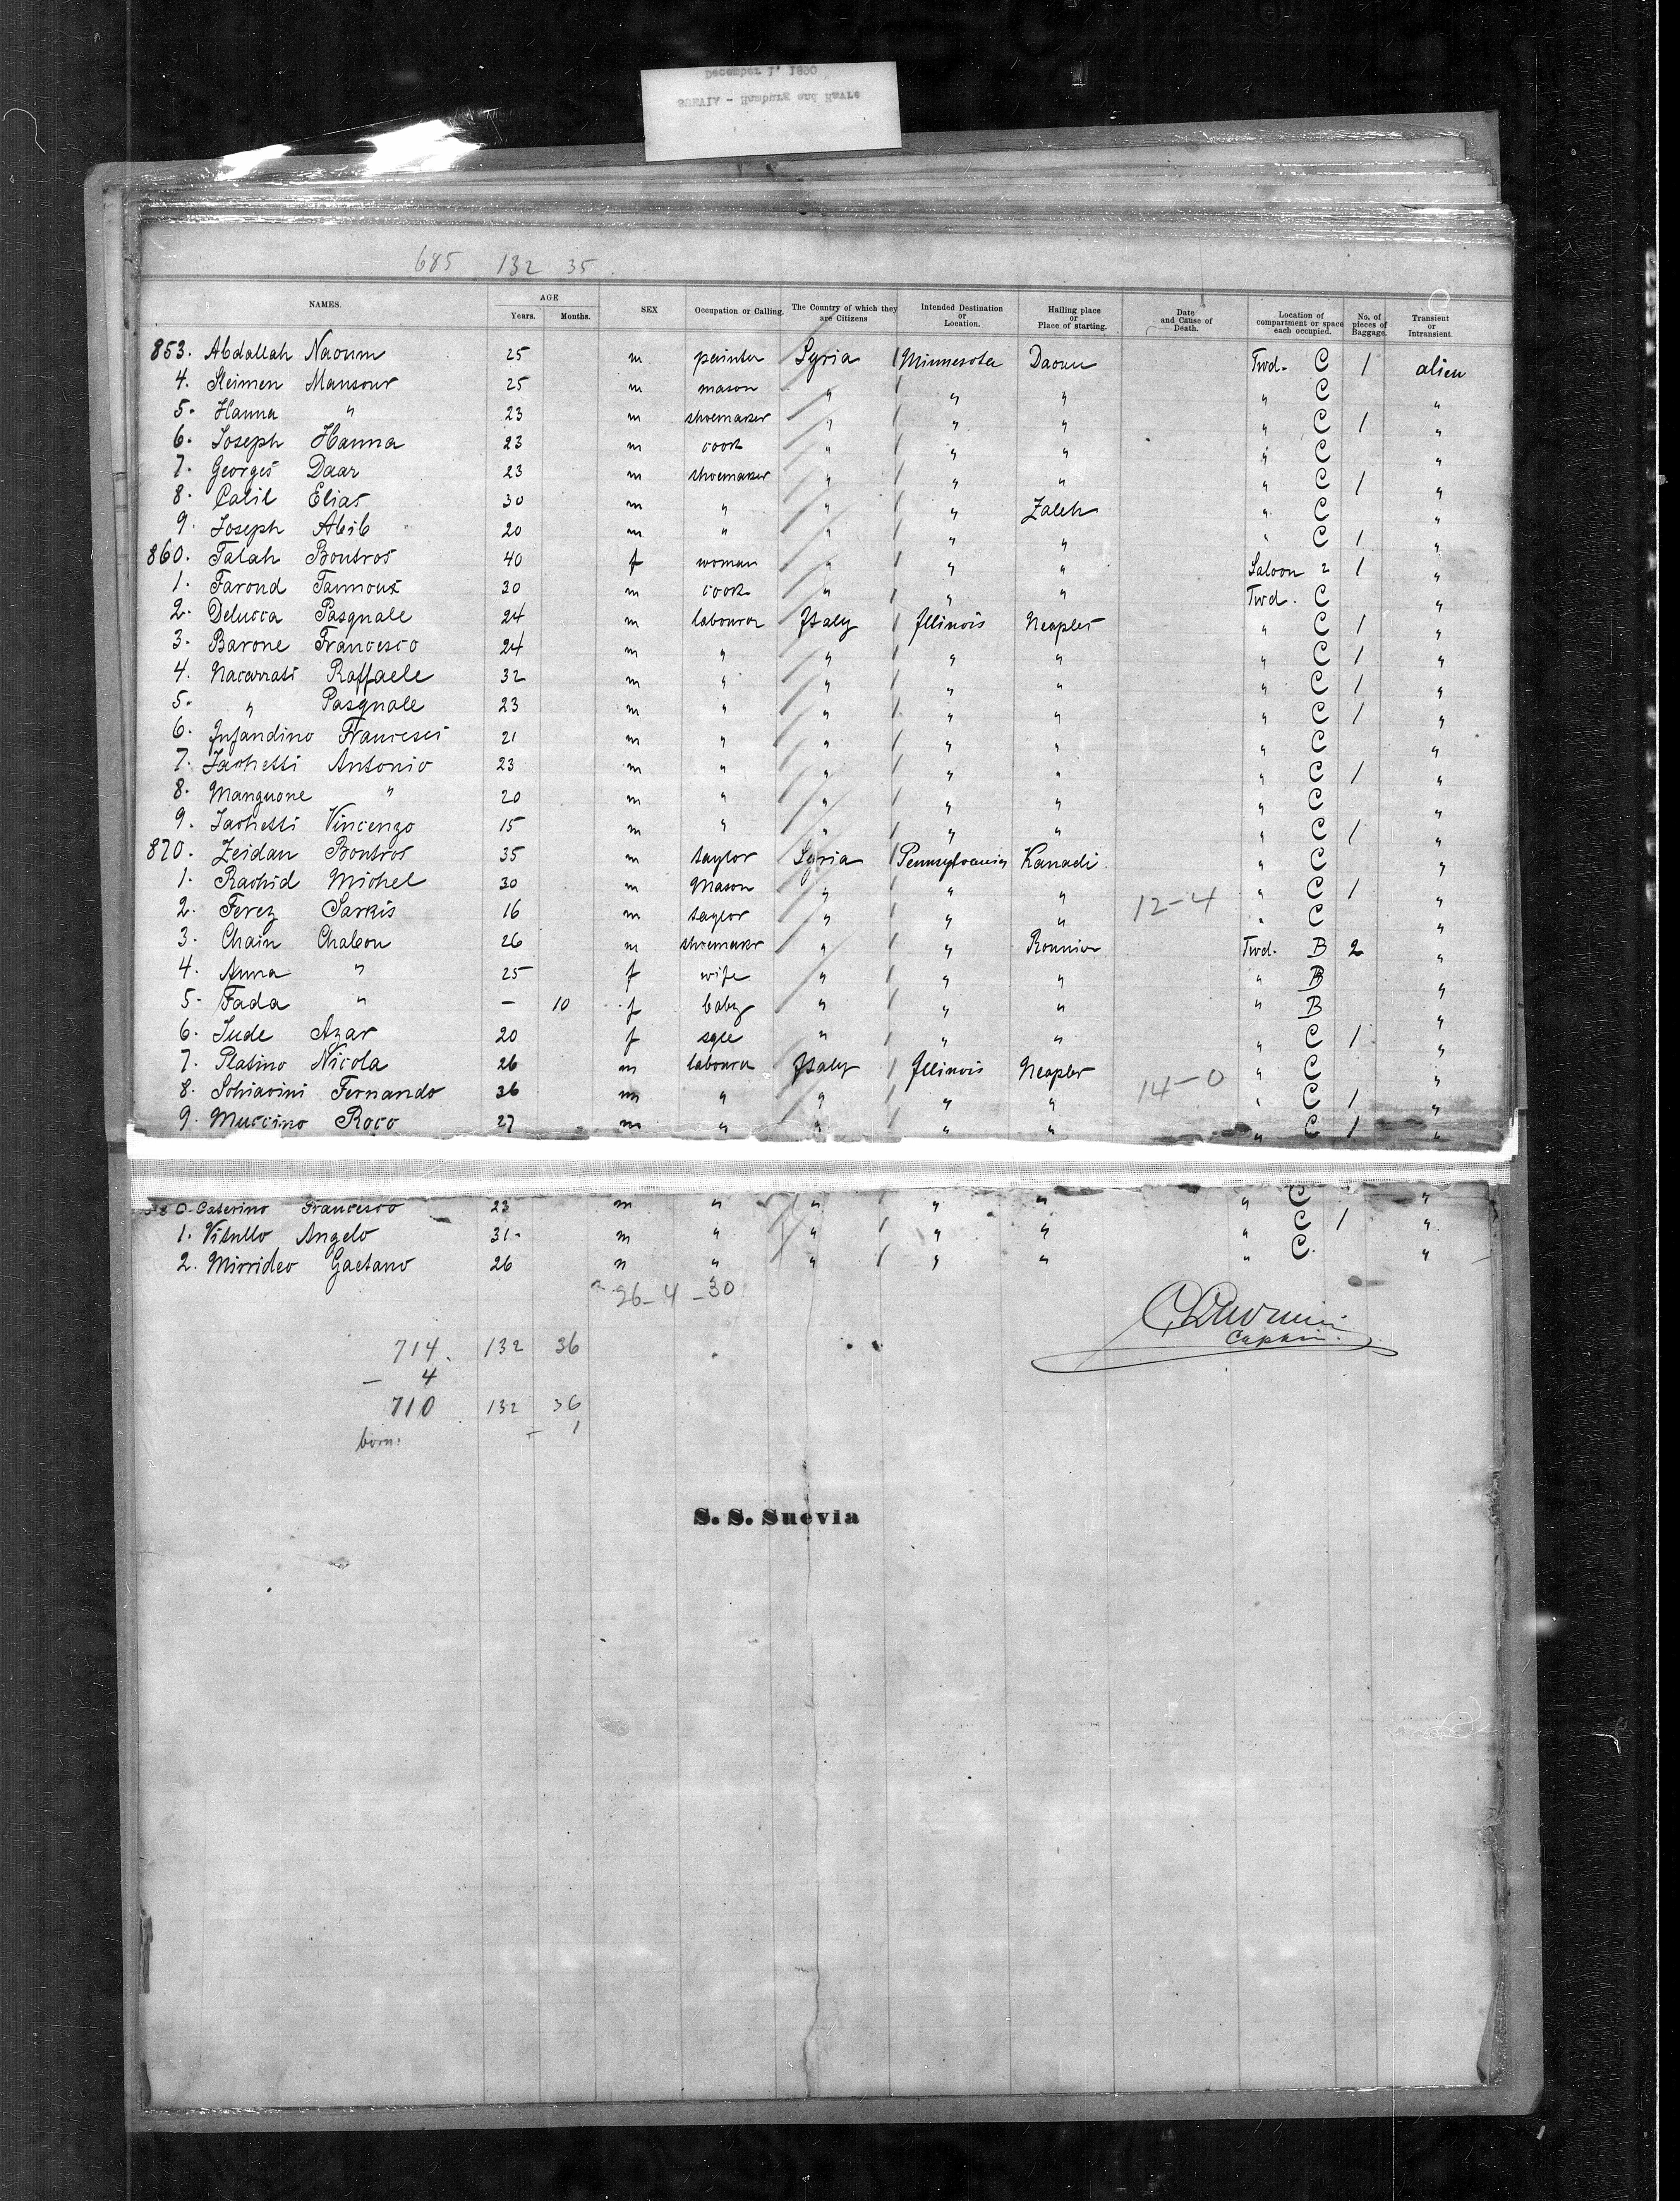 December 1, 1890
SUEVIA - Hamburg and Havre
685 132 35
NAMES. AGE Years. Months. SEX Occupation or Calling. The Country of which they are Citizens Intended Destination or Location. Hailing place or Place of starting. Date and Cause of Death. Location of compartment or space each occupied. No. of pieces of Baggage. Transient or Intransient.
853. Abdallah Naoum 25 m painter Syria 1 Minnesota Daoun Twd. C 1 alien
4. Sleimen Mansour 25 m mason " 1 " " " C "
5. Hanna " 23 m shoemaker " 1 " " " C 1 "
6. Joseph Hanna 23 m cook " 1 " " " C "
7. Georges Daar 23 m shoemaker " 1 " " " C 1 "
8. Calil Elias 30 m " " 1 " Zaleh " C "
9. Joseph Abib 20 m " " 1 " " " C 1 "
860. Talah Boutros 40 f woman " 1 " " Saloon 2 1 "
1. Faroud Tannous 30 m cook " 1 " " Twd. C "
2. Delucca Pasquale 24 m labourer Italy 1 Illinois Neaples " C 1 "
3. Barone Francesco 24 m " " 1 " " " C 1 "
4. Nacarrati Raffaele 32 m " " 1 " " " C 1 "
5. " Pasquale 23 m " " 1 " " " C 1 "
6. Infandino Francesci 21 m " " 1 " " " C "
7. Iachetti Antonio 23 m " " 1 " " " C 1 "
8. Manguone " 20 m " " 1 " " " C "
9. Iachetti Vincenzo 15 m " " 1 " " " C 1 "
870. Zeidan Boutros 35 m taylor Syria 1 Pennsylvania Kanadi " C "
1. Rachid Michel 30 m Mason " 1 " " " C 1 "
2. Ferez Sarkis 16 m taylor " 1 " " 12-4 " C "
3. Chain Chaleou 26 m shoemaker " 1 " Rounior Twd. B 2 "
4. Anna " 25 f wife " 1 " " " B "
5. Fada " - 10 f baby " 1 " " " B "
6. Jude Azar 20 f sgle " 1 " " " C 1 "
7. Platino Nicola 26 m labourer Italy 1 Illinois Neapler " C "
8. Schiavini Fernando 36 m " " 1 " " 14-0 " C 1 "
9. Muccino Roco 27 m " " 1 " " " C 1 "
880. Caterino Francesco 23 m " " 1 " " " C "
1. Vitullo Angelo 31 m " " 1 " " " C 1 "
2. Mirrideo Gaetano 26 m " " 1 " " " C "
26-4-30
714 132 36
- 4
710 132 36
born. + 1
Captain.
S. S. Suevia